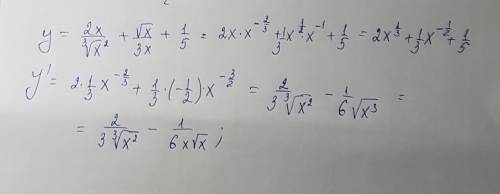 y = 2x/∛x² + √x/3x + 1/5 = 2x·x^(-2/3) + 1/3 x^(1/2)·x^(-1) + 1/5 = 2x^(1/3) + 1/3 x^(-1/2) + 1/5
y' = 2·1/3 x^(-2/3) + 1/3·(-1/2)·x^(-3/2) = 2/(3∛x²) - 1/(6√x³) =
= 2/(3∛x²) - 1/(6x√x) ;